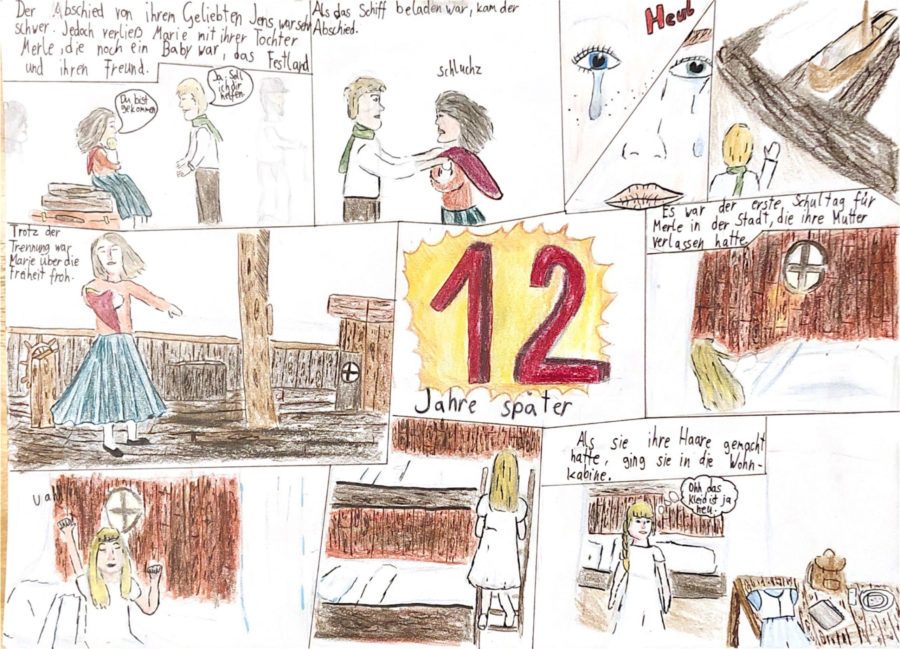 Der Abschied von ihrem Geliebten Jens war sehr
schwer. Jedoch verließ Marie mit ihrer Tochter
Merle, die noch ein Baby war, das Festland
und ihren Freund.
Du bist
gekommen
Ja. Soll
ich dir
helfen
Als das Schiff beladen war, kam der
Abschied.
schluchz
Heul
Trotz der
Trennung war
Marie über die
Freiheit froh.
12
Jahre später
Es war der erste Schultag für
Merle in der Stadt, die ihre Mutter
verlassen hatte.
Als sie ihre Haare gemacht
hatte, ging sie in die Wohn-
kabine.
Ohh das
Kleid ist ja
neu.